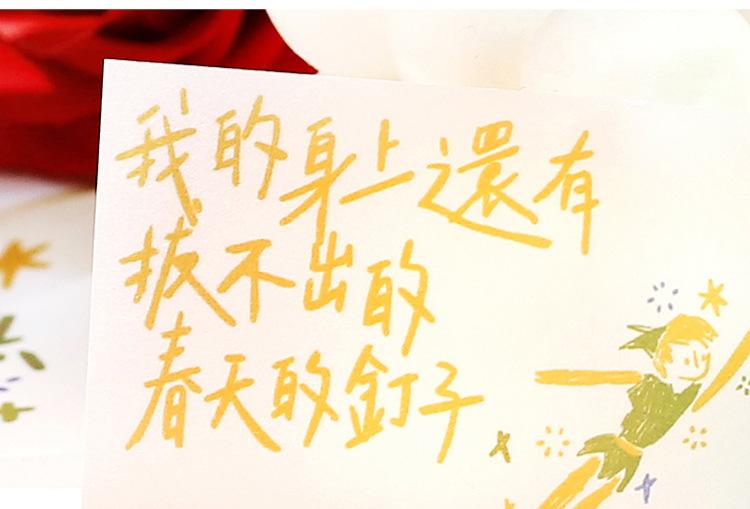 我的身上還有
拔不出的
春天的釘子